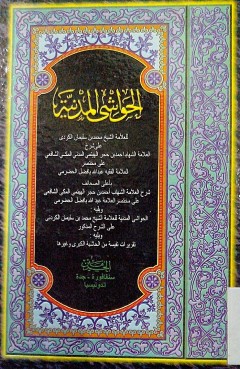 الحواشي المدنية
للعلامة الشيخ محمد بن سليمان الكردي
على شرح
العلامة الشهاب احمد بن حجر الهيتمي المدني المكي الشافعي
على مختصر
العلامة الفقيه عبدالله بافضل الحضرمي
بأعلى الصحائف
شرح العلامة الشهاب احمد بن حجر الهيتمي المكي الشافعي
على مختصر العلامة عبد الله بافضل الحضرمي
ويليه
الحواشي المدنية للعلامة الشيخ محمد بن سليمان الكردي
على الشرح المذكور
ويليه
تقريرات نفيسة من الحاشية الكبرى وغيرها
الحرمين
سنقافورة - جدة
اندونيسيا